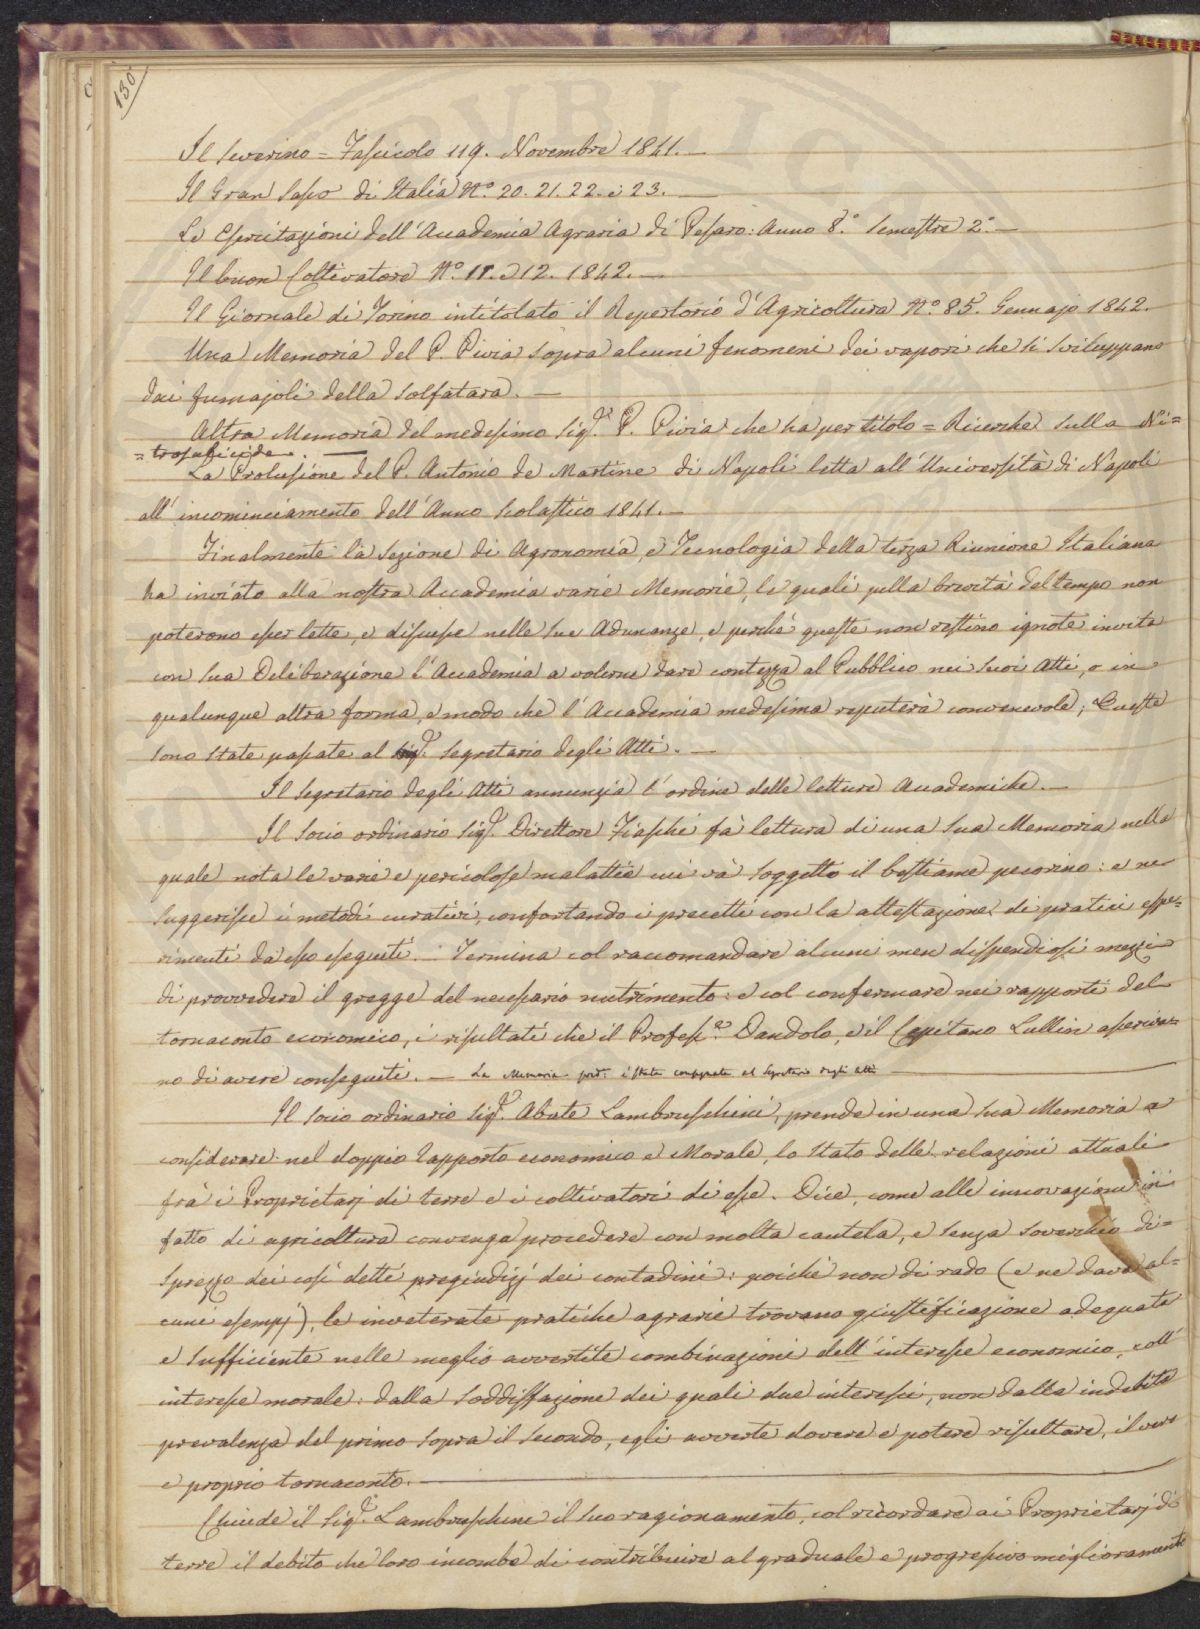 130
Il Severino = Fascicolo 119. Novembre 1841. —
Il Gran Sasso di Italia N.° 20. 21. 22. e 23. —
Le Esercitazioni dell'Accademia Agraria di Pesaro: Anno 8.° Semestre 2.° —
Il buon Coltivatore N.° 11. e 12. 1842. —
Il Giornale di Torino intitolato il Repertorio d'Agricoltura N.° 85. Gennajo 1842.
Una Memoria del P. Piria sopra alcuni fenomeni dei vapori che si sviluppano
dai fumajoli della Solfatara. —
Altra Memoria del medesimo Sig.r P. Piria che ha per titolo = Ricerche sulla Ni=
=trosalicide. —
La Prolusione del P. Antonio de Martine di Napoli letta all'Università di Napoli
all'incominciamento dell'Anno Scolastico 1841. —
Finalmente la Sezione di Agronomia, e Tecnologia della terza Riunione Italiana
ha inviato alla nostra Accademia varie Memorie, le quali pella brevità del tempo non
poterono esser lette, e discusse nelle sue Adunanze, e perchè queste non restino ignote invita
con sua Deliberazione l'Accademia a volerne dare contezza al Pubblico nei suoi Atti, o in
qualunque altra forma, e modo che l'Accademia medesima reputerà convenevole; Queste
sono state passate al Sig.r Segretario degli Atti. —
Il Segretario degli Atti annunzia l'ordine delle letture Accademiche. —
Il Socio ordinario Sig.r Direttore Fiaschi fà lettura di una sua Memoria nella
quale nota le varie e pericolose malattie cui và soggetto il bestiame pecorino: e ne
suggerisce i metodi curativi, confortando i precetti con la attestazione di pratici espe=
rimenti da esso eseguiti. — Termina col raccomandare alcuni men dispendiosi mezzi
di provvedere il gregge del necessario nutrimento: e col confermare nei rapporti del
tornaconto economico, i risultati che il Profess.e Dandolo, e il Capitano Lullin asseriva=
no di avere conseguiti. — La Memoria pred.a è stata consegnata al Segretario degli Atti —
Il Socio ordinario Sig.r Abate Lambruschini, prende in una sua Memoria a
considerare nel doppio rapporto economico e Morale, lo stato delle relazioni attuali
frà i Proprietarj di terre e i coltivatori di esse. Dice, come alle innovazioni in
fatto di agricoltura convenga procedere con molta cautela, e senza soverchio di=
sprezzo dei così detti pregiudizj dei contadini: poichè non di rado (e ne dava al=
cuni esempj), le inveterate pratiche agrarie trovano giustificazione adequata
e sufficiente nelle meglio avvertite combinazioni dell'interesse economico, coll'
interesse morale: dalla soddisfazione dei quali due interessi, non dalla indebita
prevalenza del primo sopra il secondo, egli avverte dovere e potere risultare, il vero
e proprio tornaconto. —
Chiude il Sig.r Lambruschini il suo ragionamento, col ricordare ai Proprietarj di
terre il debito che loro incombe di contribuire al graduale e progressivo miglioramento